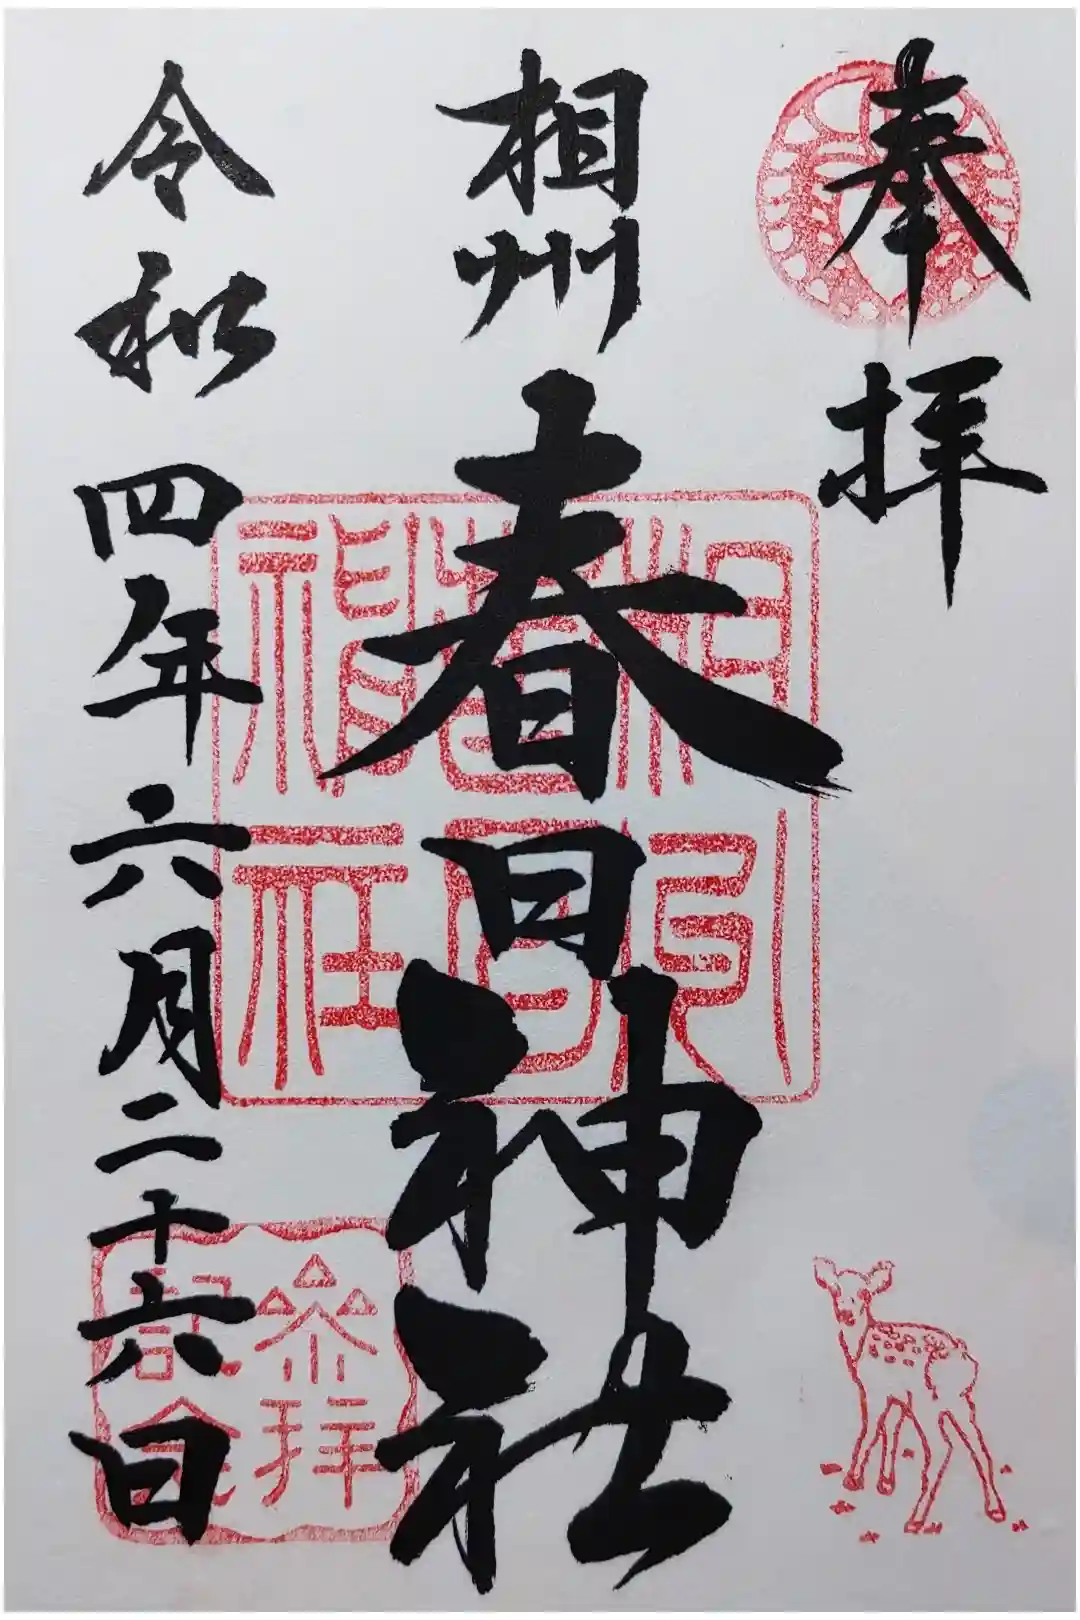 奉拝
相州春日神社
令和四年六月二十六日
相州
春日
神社
参拝
記念